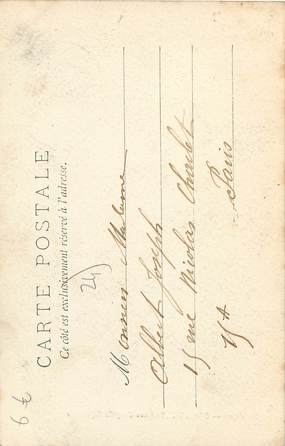 CARTE POSTALE
Ce côté est exclusivement réservé à l'adresse.
Monsieur Madame
Albert Joseph
15 rue Nicolas Charlet
15e
Paris
6 €